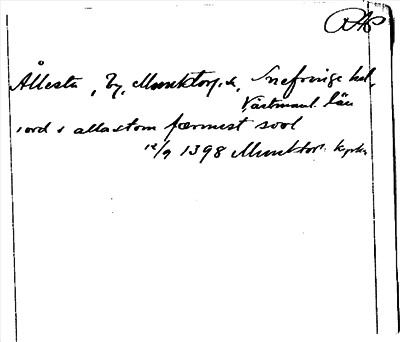 RAP
Ållesta, by, Munktorp s., Snefringe hd,
Västmanl. län
iord i allastom færmest sool
12/9 1398 Munktorp kyrka